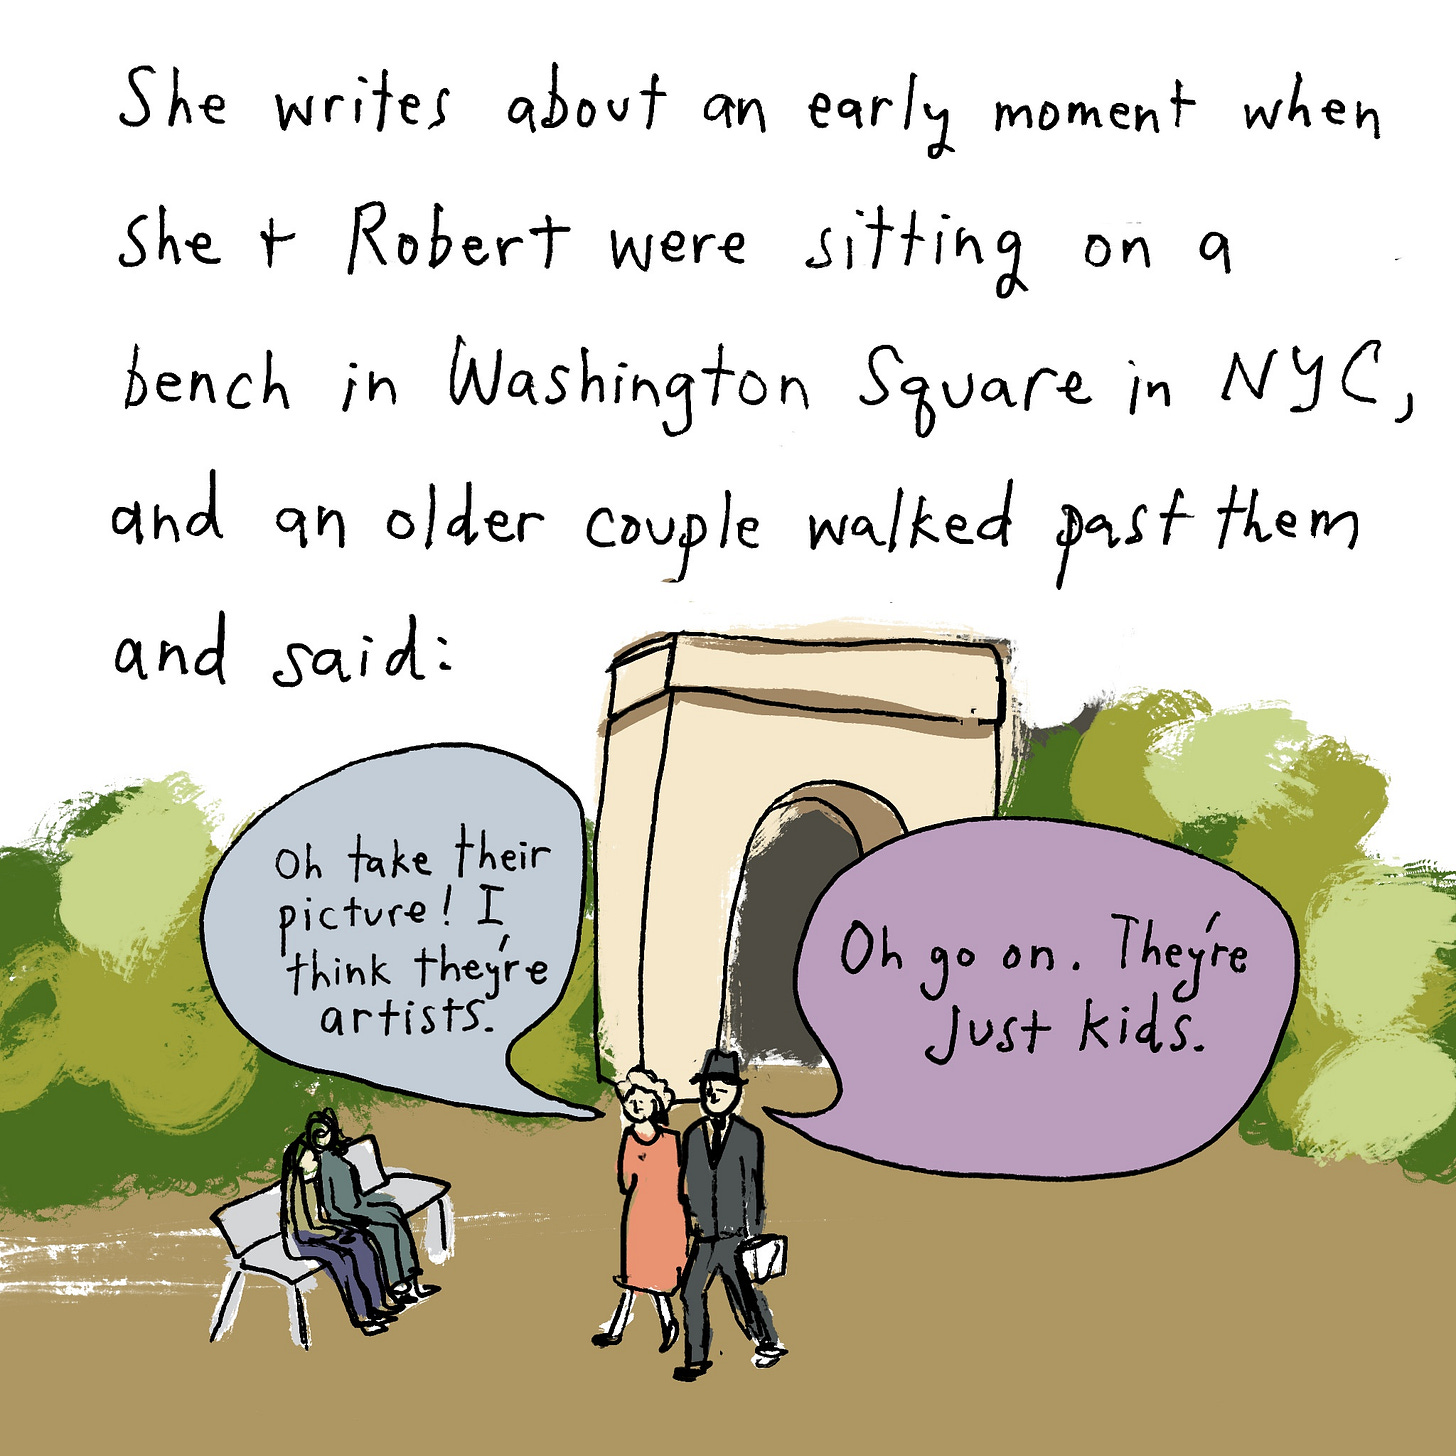 She writes about an early moment when
she + Robert were sitting on a
bench in Washington Square in NYC,
and an older couple walked past them
and said:
Oh take their
picture! I
think they're
artists.
Oh go on. They're
Just kids.